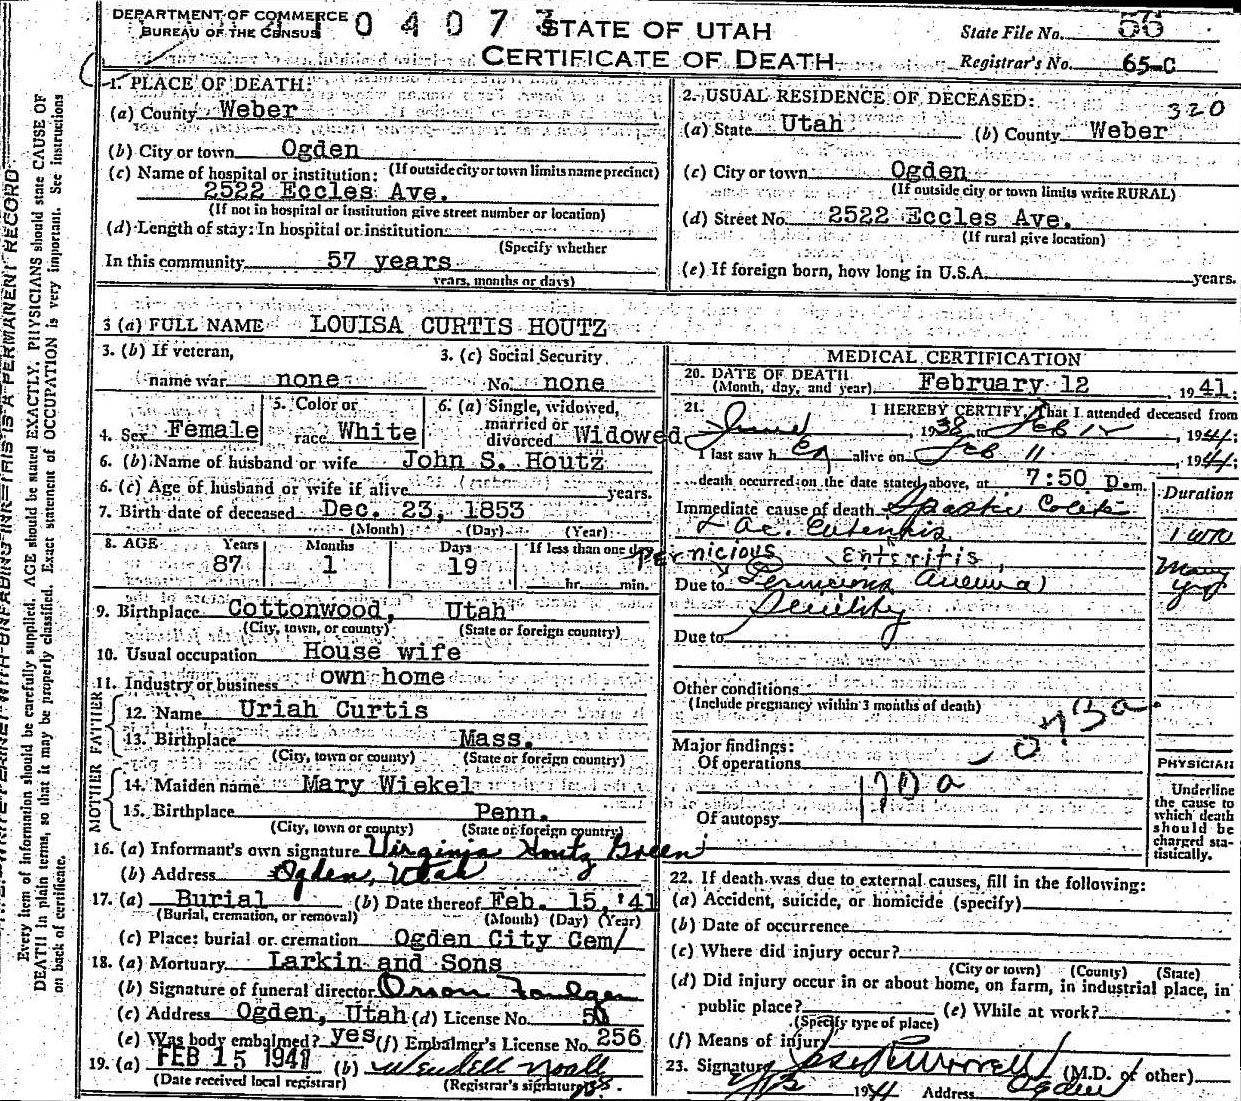 DEPARTMENT OF COMMERCE
BUREAU OF THE CENSUS
0 4 0 7 3
STATE OF UTAH
CERTIFICATE OF DEATH
State File No. 56
Registrar's No. 65-C
1. PLACE OF DEATH:
(a) County Weber
(b) City or town Ogden
(If outside city or town limits name precinct)
(c) Name of hospital or institution:
2522 Eccles Ave.
(If not in hospital or institution give street number or location)
(d) Length of stay: In hospital or institution
(Specify whether
In this community 57 years
years, months or days)
2. USUAL RESIDENCE OF DECEASED: 320
(a) State Utah (b) County Weber
(c) City or town Ogden
(If outside city or town limits write RURAL)
(d) Street No. 2522 Eccles Ave.
(If rural give location)
(e) If foreign born, how long in U.S.A. years.
3 (a) FULL NAME LOUISA CURTIS HOUTZ
3. (b) If veteran,
name war none
3. (c) Social Security
No. none
4. Sex Female
5. Color or
race White
6. (a) Single, widowed,
married or
divorced Widowed
6. (b) Name of husband or wife John S. Houtz
6. (c) Age of husband or wife if alive years.
7. Birth date of deceased Dec. 23, 1853
(Month) (Day) (Year)
8. AGE Years Months Days If less than one day
87 1 19 hr. min.
9. Birthplace Cottonwood, Utah
(City, town, or county) (State or foreign country)
10. Usual occupation House wife
11. Industry or business own home
FATHER
12. Name Uriah Curtis
13. Birthplace Mass.
(City, town or county) (State or foreign country)
MOTHER
14. Maiden name Mary Wiekel
15. Birthplace Penn.
(City, town or county) (State or foreign country)
16. (a) Informant's own signature Virginia Houtz Green
(b) Address Ogden, Utah
17. (a) Burial (b) Date thereof Feb. 15, '41
(Burial, cremation, or removal) (Month) (Day) (Year)
(c) Place: burial or cremation Ogden City Cem/
18. (a) Mortuary Larkin and Sons
(b) Signature of funeral director Orson Foulger
(c) Address Ogden, Utah (d) License No.
(e) Was body embalmed? yes (f) Embalmer's License No. 256
19. (a) FEB 15 1941 (b) Wendell Noall
(Date received local registrar) (Registrar's signature)
MEDICAL CERTIFICATION
20. DATE OF DEATH
(Month, day, and year) February 12, 1941;
21. I HEREBY CERTIFY, That I attended deceased from
June, 1938 to Feb 12, 1941;
I last saw h er alive on Feb 11, 1941;
death occurred on the date stated above, at 7:50 p.m.
Duration
Immediate cause of death Spastic Colitis
& Ac. Enteritis
Pernicious Enteritis,
Due to Pernicious Anemia
Many yrs
Senility
Due to
Other conditions
(Include pregnancy within 3 months of death)
073a
Major findings:
Of operations
Of autopsy
PHYSICIAN
Underline
the cause to
which death
should be
charged sta-
tistically.
22. If death was due to external causes, fill in the following:
(a) Accident, suicide, or homicide (specify)
(b) Date of occurrence
(c) Where did injury occur?
(City or town) (County) (State)
(d) Did injury occur in or about home, on farm, in industrial place, in
public place? (e) While at work?
(Specify type of place)
(f) Means of injury
23. Signature (M.D. or other)
1941 Address Ogden
Every item of information should be carefully supplied. AGE should be stated EXACTLY. PHYSICIANS should state CAUSE OF
DEATH in plain terms, so that it may be properly classified. Exact statement of OCCUPATION is very important. See instructions
on back of certificate.
THIS IS A PERMANENT RECORD